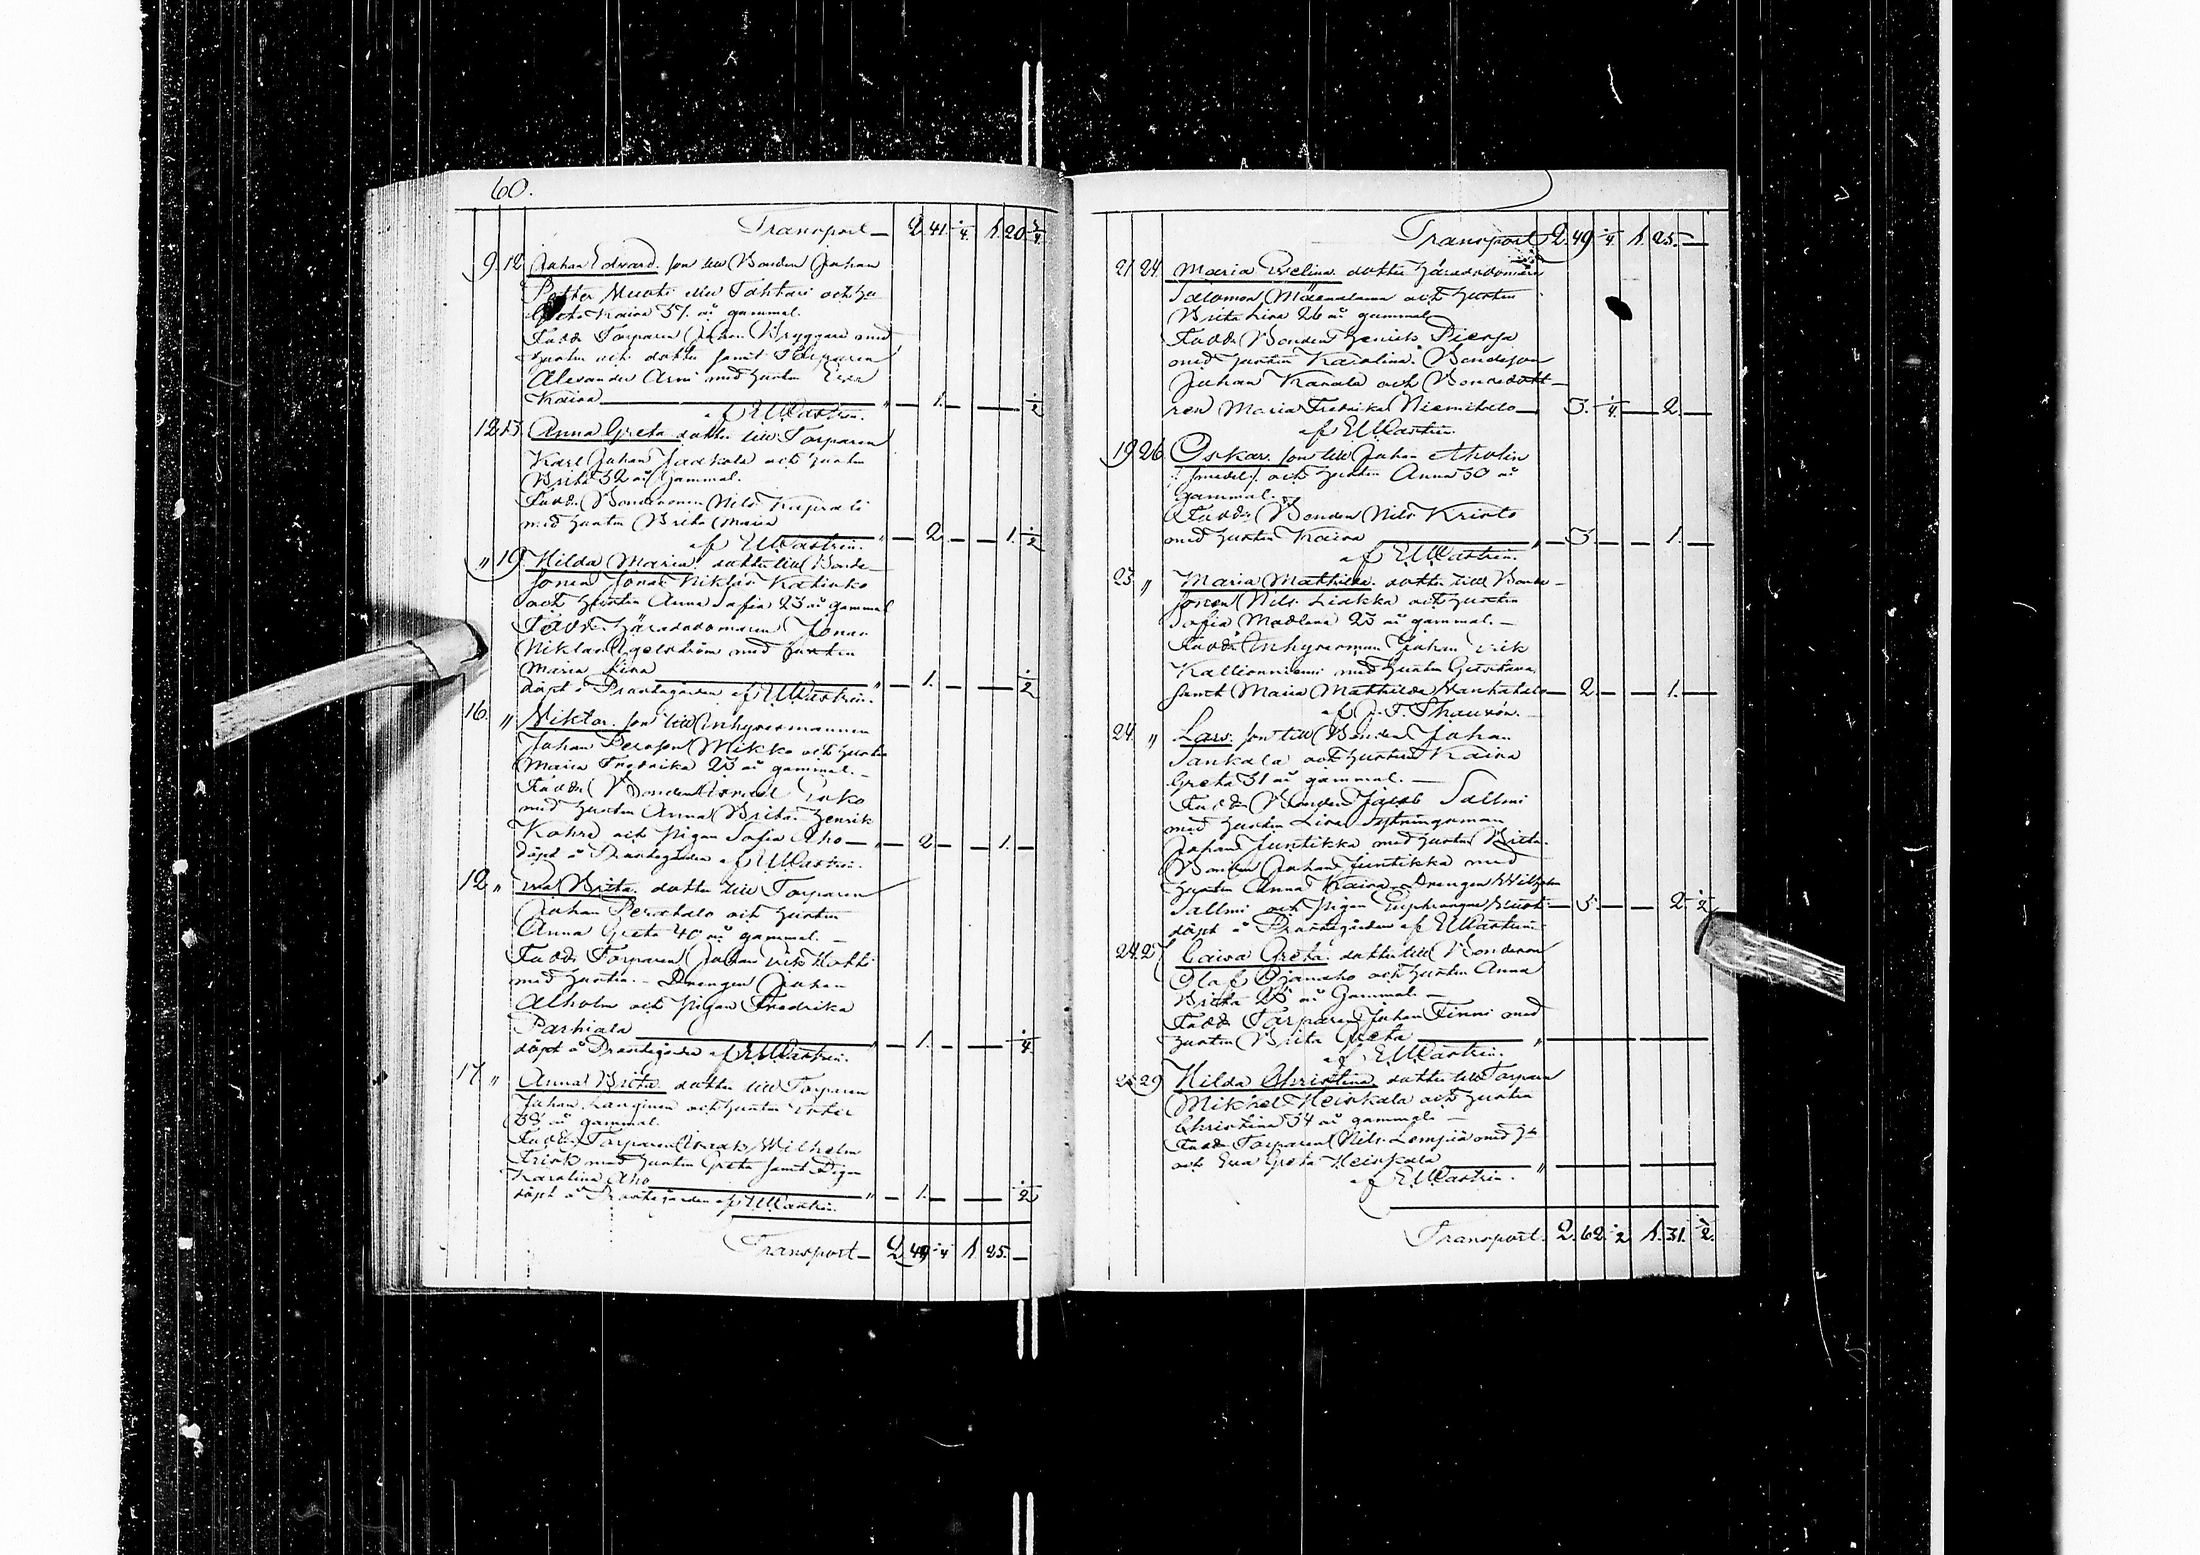 60.
Transport — 2. 41. 1/4. 1. 20. 3/4
9. 12 Johan Edvard. son till Bonden Johan
Petter Muoti eller Tahtari och hu
Greta Kaisa 37. år gammal.
Fadd: Torparen Johan Bryggare med
hustru och dotter samt Torparen
Alexander Arni med hustru
Kaisa — " — 1. — — 1/2
af E.W. Castrén.
12 13. Anna Greta dotter till Torparen
Karl Johan Jaakola och hustru
Brita 32 år gammal.
Fadd: Bondesonen Nils
med hustru Brita Maria — " — 2. — 1. 1/2
af E.W. Castrén.
" 19. Hilda Maria. dotter till Bonde-
sonen Jonas Niklas
och hustru Anna Sofia 23 år gammal
Fadd: Häradsdomaren Jonas
Niklas med hustru
Maria Lisa
döpt å Prostegården af E.W. Castrén. " — 1. — — 1/2
16. " Viktor. son till Inhysesmannen
Johan Persson Mikko och hustru
Maria Fredrika 23 år gammal. —
Fadd: Bonden Israel
med hustru Anna Brita. Henrik
och pigan Sofia Aho — " — 2 — — 1. —
döpt å Prostegården af E.W. Castrén.
12 " Eva Brita. dotter till Torparen
Johan Perähalo och hustru
Anna Greta 40 år gammal. —
Fadd: Torparen Johan Erik
med hustru. — Drängen Johan
Alholm och pigan Fredrika
— " — 1. — — 1/4
döpt å Prostegården af E.W. Castrén.
17 " Anna Brita dotter till Torparen
Johan Kanginen och hustru
33 år gammal.
Fadd: Torparen Isaak Wilhelm
Frisk med hustru Greta samt Pigan
Karolina Aho
döpt å Prostegården af E.W. Castrén. " — 1. — — 1/2
Transport — 2. 49. 1/4 1. 25. —
Transport 2. 49. 1/4 1. 25. —
21 24. Maria Evelina. dotter Häradsdomare
Salomon Määnalanen och hustru
Brita Lisa 26 år gammal —
Fadd: Bonden Henrik
med hustru Karolina. Bondeson
Johan Kanala och Bondedott-
ren Maria Fredrika Niemihalo — 3. 1/4. — 2. —
af E.W. Castrén.
19 26 Oskar. son till Johan Aholin
/: smeden:/ och hustru Anna 30 år
gammal. —
Fadd: Bonden Nils Kristo
med hustru Kaisa — " — 3. — — 1. —
af E.W. Castrén.
23 " Maria Mathilda. dotter till Bonde-
sonen Nils Liakka och hustru
Sofia Madlena 23 år gammal. —
Fadd: Inhysesman Johan Erik
Kallionniemi med hustru
samt Maria Mathilda — 2. — — 1. —
af J. F. Thaurén. —
24 " Lars. son till Bonden Johan
Sankala och hustru Kaisa
Greta 31 år gammal. —
Fadd: Bonden Jacob Sallmi
med hustru Lisa Sytningsman
Johan Juntikka med hustru Brita.
Bonden Johan Juntikka med
hustru Anna Kaisa. — Drängen Wilhelm
Sallmi och pigan — 5. — — 2. 1/2
döpt å Prostegården af E.W. Castrén.
24. 27 Caisa Greta. dotter till Bonden
Olaf Ojanaho och hustru Anna
Brita 28 år Gammal. —
Fadd: Torparen Johan Finni med
hustru Brita Greta — " —
af E.W. Castrén.
25 29 Hilda Christina dotter till Torparen
Mikkel Heiskala och hustru
Christina 34 år gammal. —
Fadd: Torparen Nils Lompiä med hu
och Eva Greta Heiskala — " —
af E.W. Castrén.
Transport. 2. 62. 1/2 1. 31. 1/2.